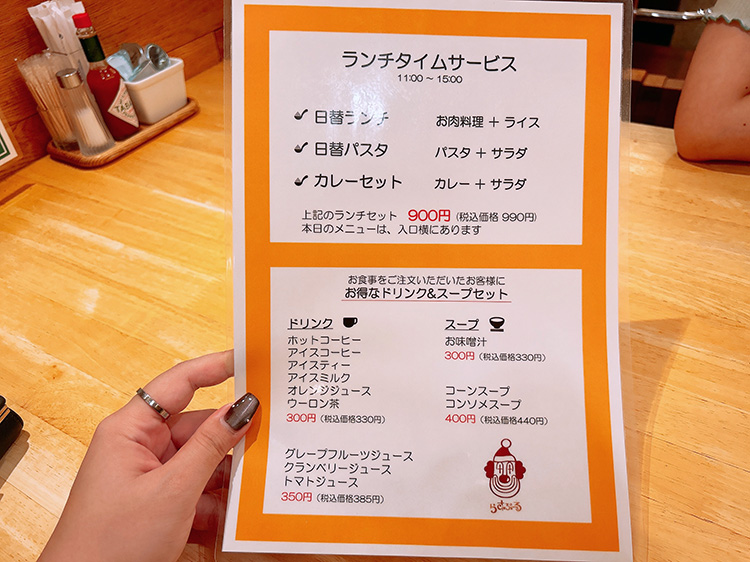 ランチタイムサービス
11:00 ～ 15:00
日替ランチ お肉料理 ＋ ライス
日替パスタ パスタ ＋ サラダ
カレーセット カレー ＋ サラダ
上記のランチセット 900円 (税込価格 990円)
本日のメニューは、入口横にあります
お食事をご注文いただいたお客様に
お得なドリンク&スープセット
ドリンク
ホットコーヒー
アイスコーヒー
アイスティー
アイスミルク
オレンジジュース
ウーロン茶
300円 (税込価格330円)
グレープフルーツジュース
クランベリージュース
トマトジュース
350円 (税込価格385円)
スープ
お味噌汁
300円 (税込価格330円)
コーンスープ
コンソメスープ
400円 (税込価格440円)